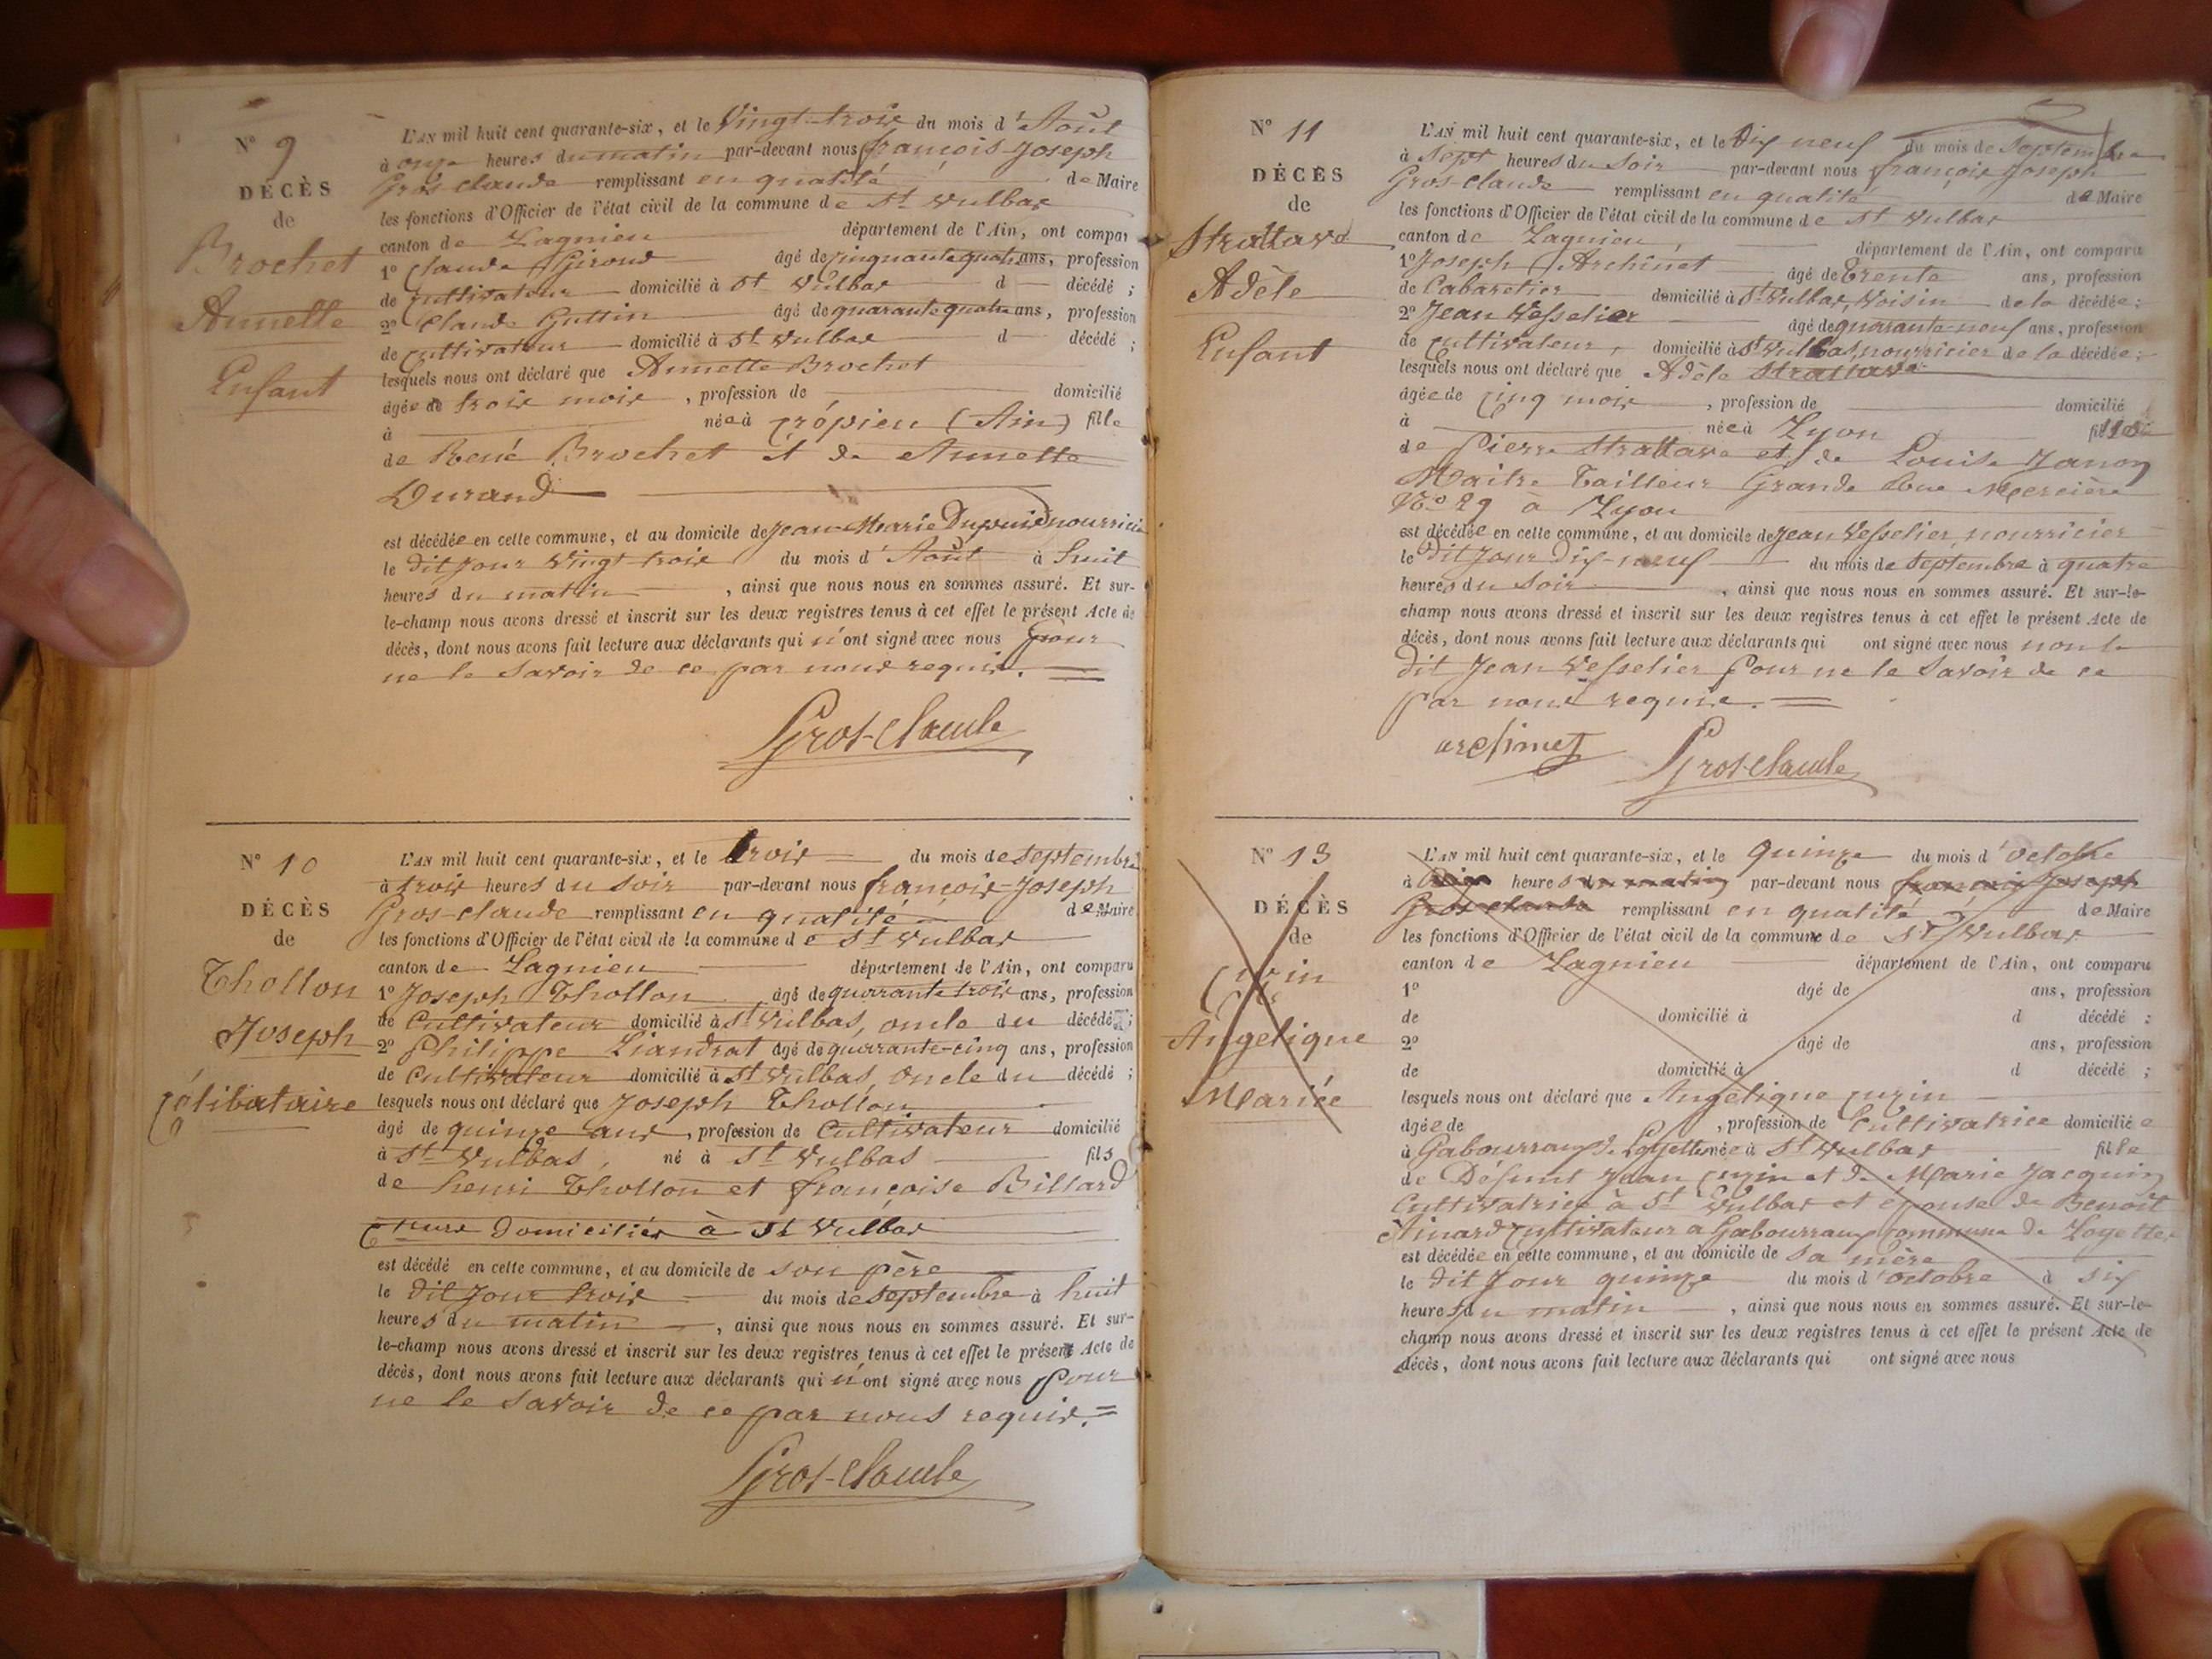 N° 9
DÉCÈS
de
Brochet
Annette
Enfant
L'AN mil huit cent quarante-six, et le Vingt-trois du mois d'Août
à onze heures du matin par-devant nous françois Joseph
Gros-claude remplissant en qualité de Maire
les fonctions d'Officier de l'état civil de la commune de St Vulbas
canton de Lagnieu département de l'Ain, ont compar
1° Claude Giroud âgé de cinquante quatre ans, profession
de cultivateur domicilié à St Vulbas d décédé ;
2° Claude Guttin âgé de quarante quatre ans, profession
de cultivateur domicilié à St Vulbas d décédé ;
lesquels nous ont déclaré que Annette Brochet
âgée de trois mois, profession de domicilié
à née à Crépieu (Ain) fille
de René Brochet et de Annette
Durand
est décédée en cette commune, et au domicile de Jean-Marie Dupuis nourricier
le dit jour Vingt trois du mois d'Août à huit
heures du matin, ainsi que nous nous en sommes assuré. Et sur-
le-champ nous avons dressé et inscrit sur les deux registres tenus à cet effet le présent Acte de
décès, dont nous avons fait lecture aux déclarants qui n'ont signé avec nous pour
ne le savoir de ce par nous requis.
Gros-Claude
N° 10
DÉCÈS
de
Thollon
Joseph
Célibataire
L'AN mil huit cent quarante-six, et le trois du mois de septembre
à trois heures du soir par-devant nous françois-Joseph
Gros-claude remplissant en qualité de Maire
les fonctions d'Officier de l'état civil de la commune de St Vulbas
canton de Lagnieu département de l'Ain, ont comparu
1° Joseph Thollon âgé de quarrante trois ans, profession
de Cultivateur domicilié à St Vulbas, oncle du décédé ;
2° Philippe Liandrat âgé de quarrante-cinq ans, profession
de Cultivateur domicilié à St Vulbas, Oncle du décédé ;
lesquels nous ont déclaré que Joseph Thollon
âgé de quinze ans, profession de Cultivateur domicilié
à St Vulbas, né à St Vulbas fils
de henri Thollon et françoise Billard
domiciliés à St Vulbas
est décédé en cette commune, et au domicile de son père
le dit jour trois du mois de septembre à huit
heures du matin, ainsi que nous nous en sommes assuré. Et sur-
le-champ nous avons dressé et inscrit sur les deux registres tenus à cet effet le présent Acte de
décès, dont nous avons fait lecture aux déclarants qui n'ont signé avec nous pour
ne le savoir de ce par nous requis.
Gros-Claude
N° 11
DÉCÈS
de
Strattave
Adèle
Enfant
L'AN mil huit cent quarante-six, et le Dix neuf du mois de septembre
à sept heures du soir par-devant nous françois Joseph
Gros-Claude remplissant en qualité de Maire
les fonctions d'Officier de l'état civil de la commune de St Vulbas
canton de Lagnieu, département de l'Ain, ont comparu
1° Joseph Archinet âgé de trente ans, profession
de Cabaretier domicilié à St Vulbas, Voisin de la décédée ;
2° Jean Vesselier âgé de quarrante-neuf ans, profession
de cultivateur, domicilié à St Vulbas, nourricier de la décédée ;
lesquels nous ont déclaré que Adèle Strattave
âgée de cinq mois, profession de domicilié
à née à Lyon fille
de Pierre Strattave et de Louise Janon
Maitre Tailleur Grande Rue Mercière
N° 29 à Lyon
est décédée en cette commune, et au domicile de Jean Vesselier nourricier
le dit jour Dix-neuf du mois de septembre à quatre
heures du soir, ainsi que nous nous en sommes assuré. Et sur-le-
champ nous avons dressé et inscrit sur les deux registres tenus à cet effet le présent Acte de
décès, dont nous avons fait lecture aux déclarants qui ont signé avec nous non le
dit Jean Vesselier pour ne le savoir de ce
par nous requis.
archinet Gros-Claude
N° 13
DÉCÈS
de
Cuzin
Angelique
Mariée
L'AN mil huit cent quarante-six, et le quinze du mois d'octobre
à heures du matin par-devant nous françois Joseph
Gros-claude remplissant en qualité de Maire
les fonctions d'Officier de l'état civil de la commune de St Vulbas
canton de Lagnieu département de l'Ain, ont comparu
1° âgé de ans, profession
de domicilié à d décédé ;
2° âgé de ans, profession
de domicilié à d décédé ;
lesquels nous ont déclaré que Angelique Cuzin
âgée de, profession de Cultivatrice domiciliée
à Gabourraux Loyettes née à St Vulbas fille
de Défunt Jean Cuzin et de Marie Jacquin
Cultivatrice à St Vulbas et épouse de Benoît
Ainard cultivateur à Gabourraux commune de Loyettes
est décédée en cette commune, et au domicile de sa mère
le dit jour quinze du mois d'octobre à six
heures du matin, ainsi que nous nous en sommes assuré. Et sur-le-
champ nous avons dressé et inscrit sur les deux registres tenus à cet effet le présent Acte de
décès, dont nous avons fait lecture aux déclarants qui ont signé avec nous